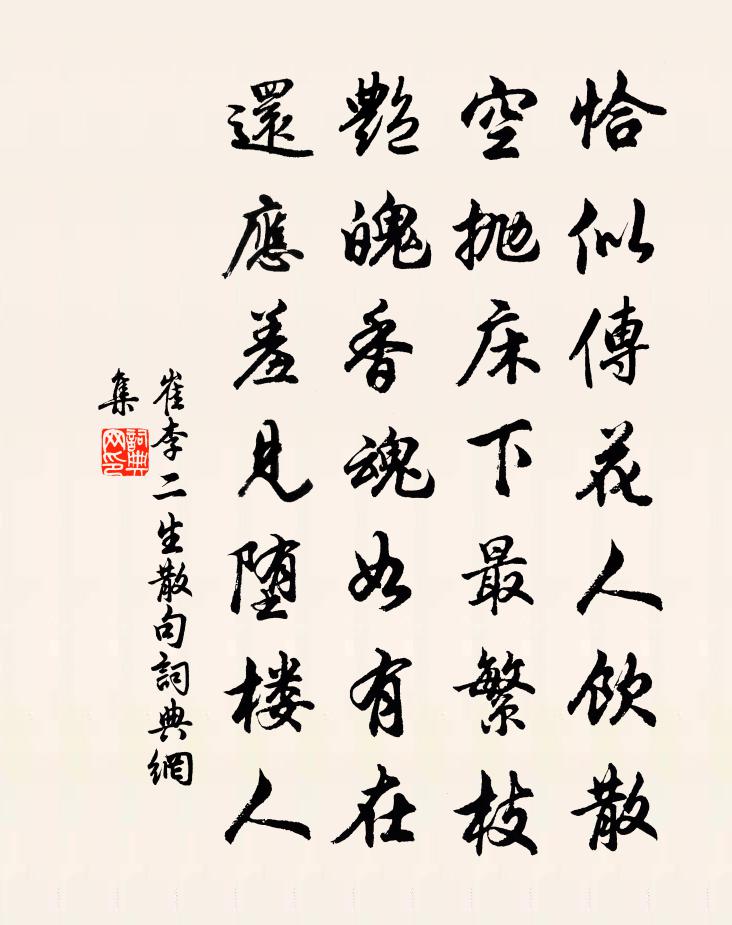 恰似傳花人飲散
空抛床下最繁枝
艷魄香魂如有在
還應羞見墮楼人
崔李二生散句詞典網
集
詞典网印